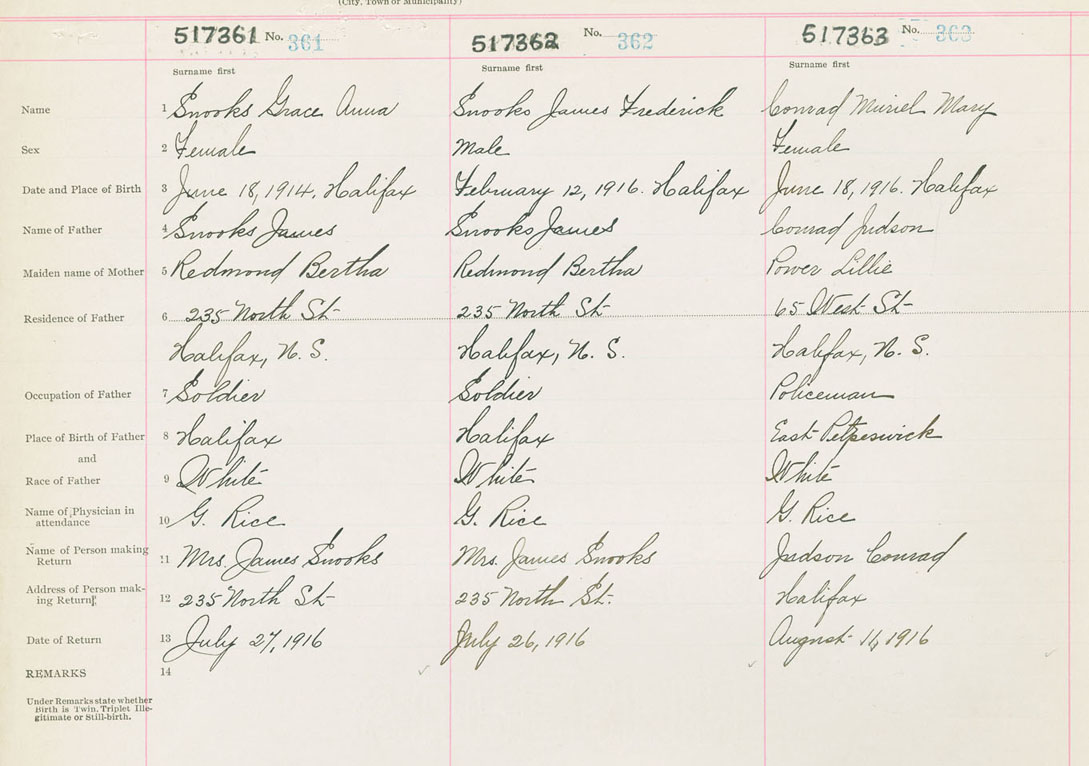 (City, Town or Municipality)
517361 No. 361 517362 No. 362 517363 No. 363
Surname first Surname first Surname first
Name 1 Snooks Grace Anna Snooks James Frederick Conrad Muriel Mary
Sex 2 Female Male Female
Date and Place of Birth 3 June 18, 1914. Halifax February 12, 1916. Halifax June 18, 1916. Halifax
Name of Father 4 Snooks James Snooks James Conrad Judson
Maiden name of Mother 5 Redmond Bertha Redmond Bertha Power Lillie
Residence of Father 6 235 North St 235 North St 65 West St
Halifax, N. S. Halifax, N. S. Halifax, N. S.
Occupation of Father 7 Soldier Soldier Policeman
Place of Birth of Father 8 Halifax Halifax East Petpeswick
and
Race of Father 9 White White White
Name of Physician in
attendance 10 G. Rice G. Rice G. Rice
Name of Person making
Return 11 Mrs. James Snooks Mrs. James Snooks Judson Conrad
Address of Person mak-
ing Return 12 235 North St 235 North St. Halifax
Date of Return 13 July 27, 1916 July 26, 1916 August 11, 1916
REMARKS 14
Under Remarks state whether
Birth is Twin, Triplet Ille-
gitimate or Still-birth.